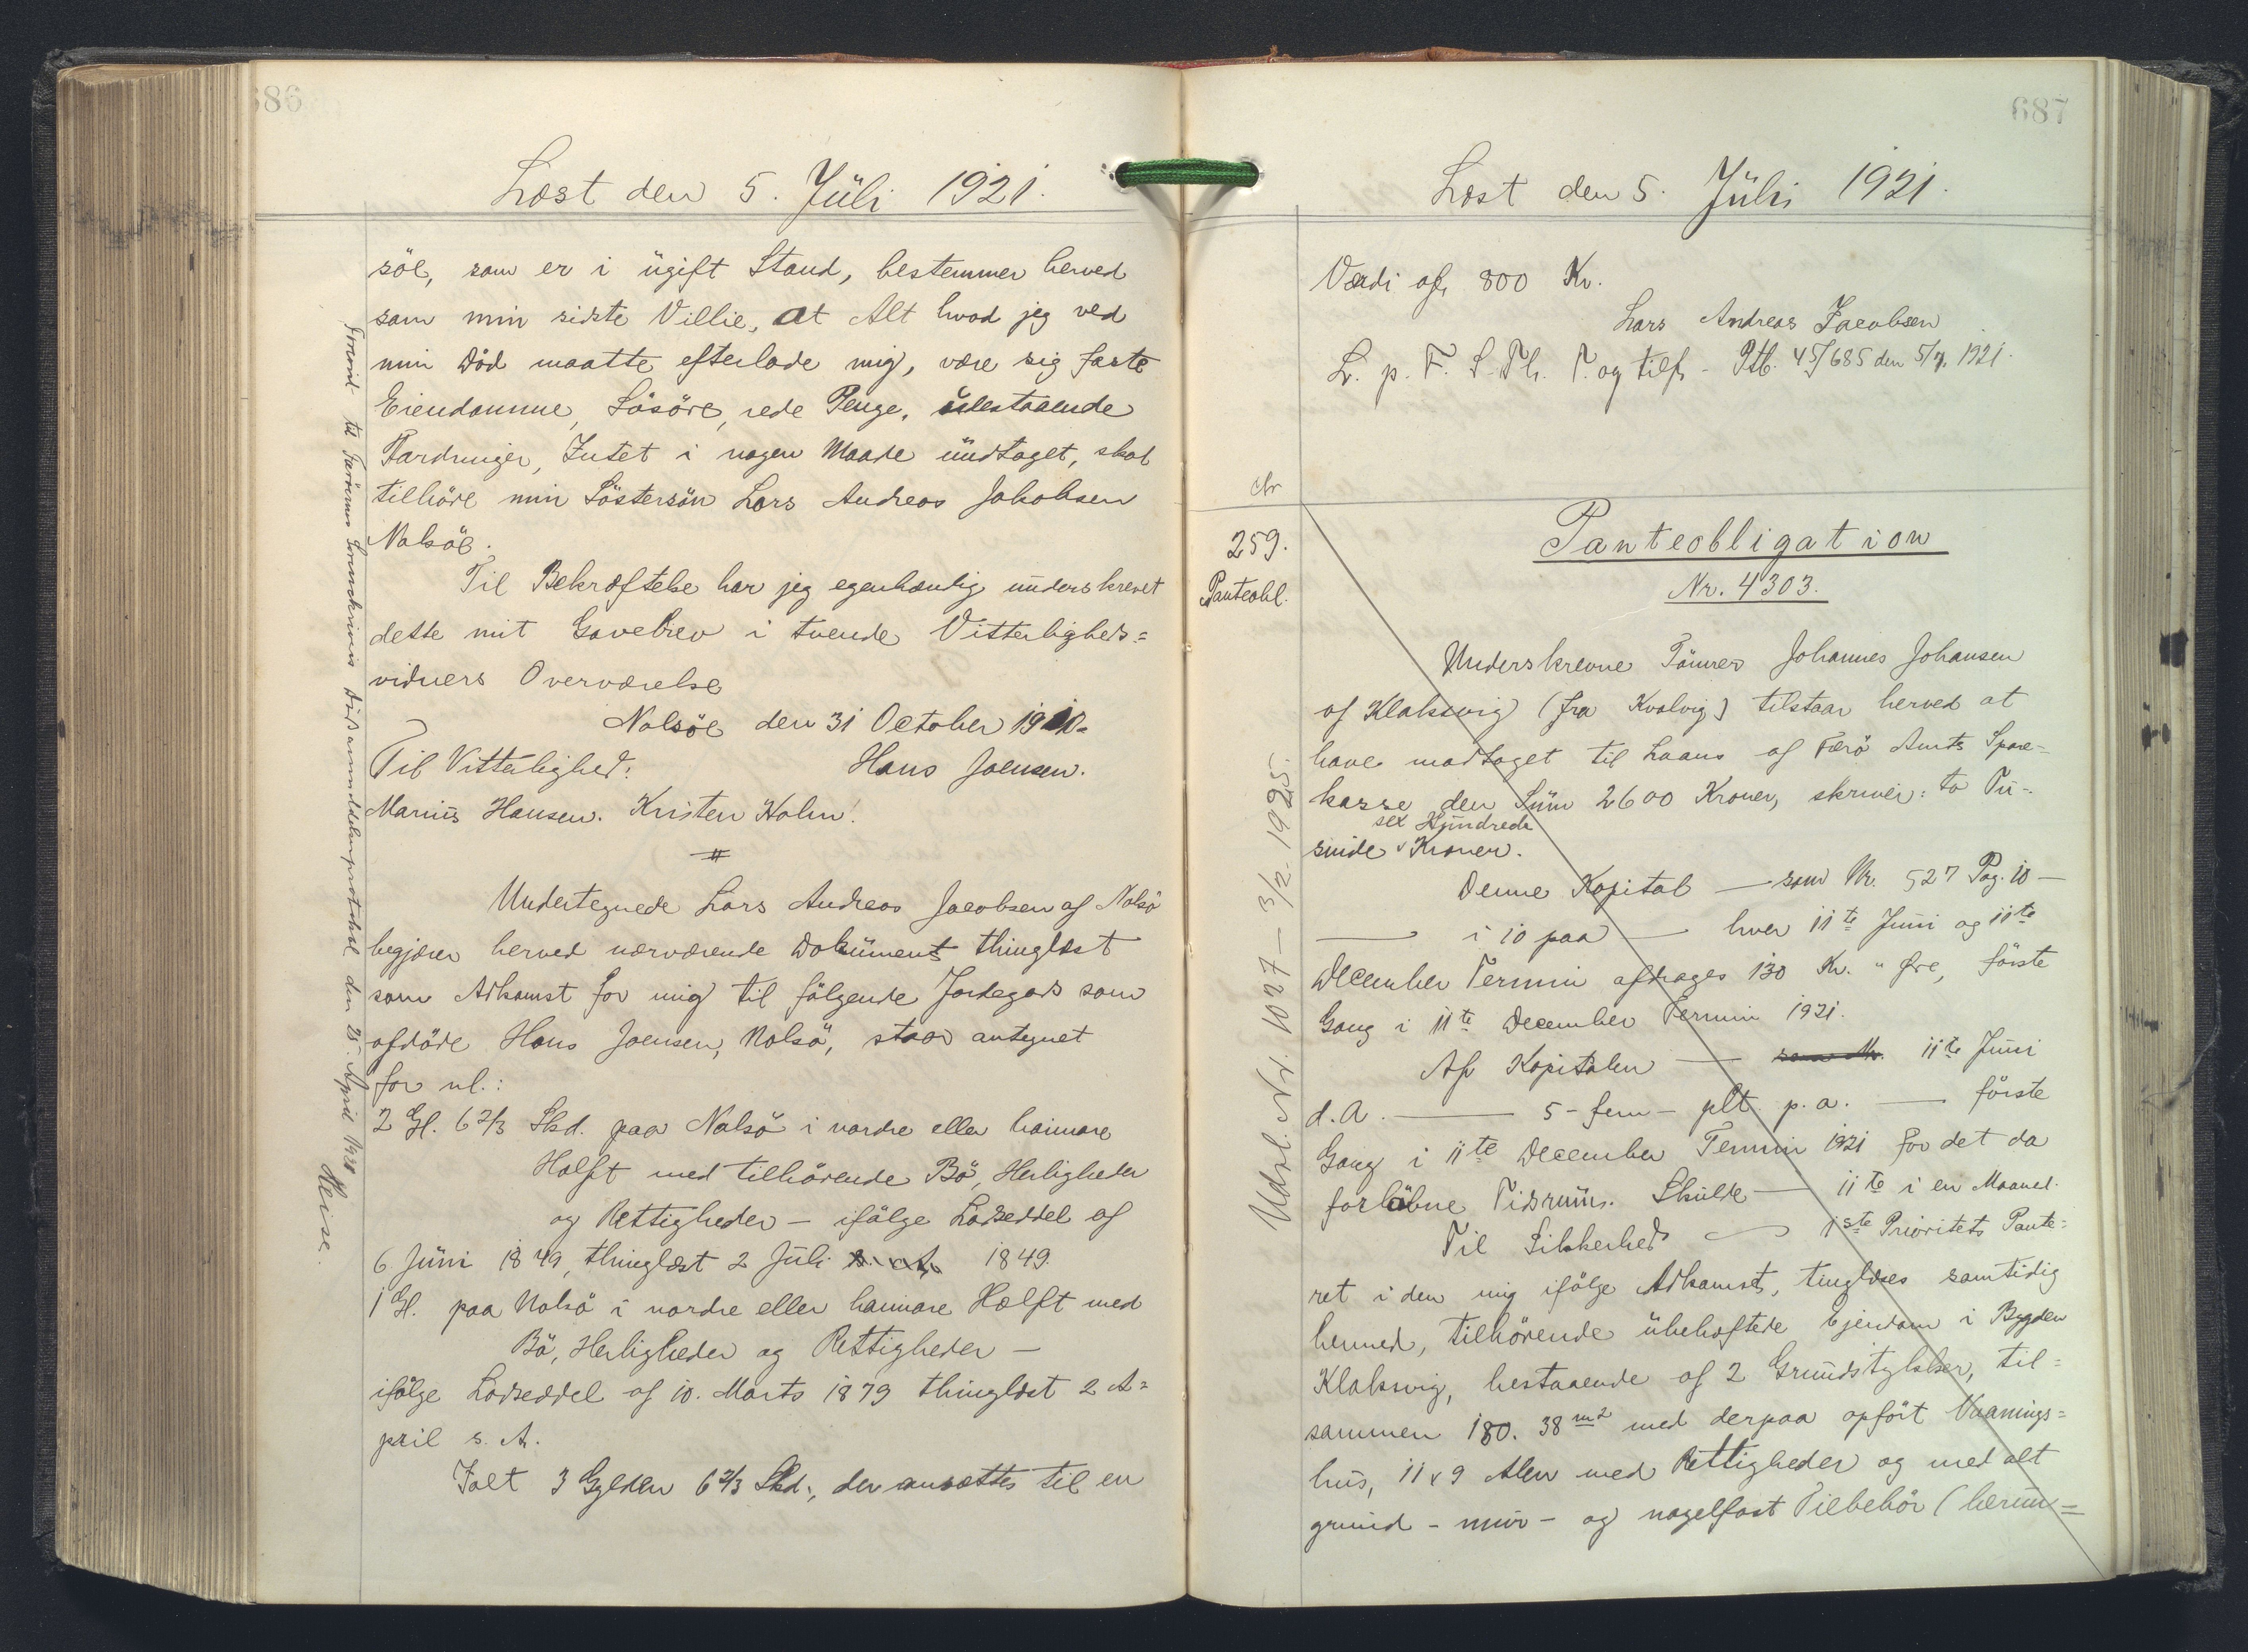 686
Læst den 5. Jüli 1921.
söe, som er i ügift Stand, bestemmer herved
som min sidste Villie, at Alt hvad jeg ved
min Död maatte efterlade mig, være sig faste
Eiendomme, Lösöre, rede Penge, üdestaaende
Fordringer, Intet i nogen Maade ündtaget, skal
tilhöre min Söstersön Lars Andreas Jakobsen
Nolsöe.
Til Bekræftelse har jeg egenhændig ünderskrevet
dette mit Gavebrev i tvende Vitterligheds=
vidners Overværelse
Nolsöe den 31 October 1910.
Til Vitterlighed: Hans Joensen.
Mariüs Hansen. Kristen Holm!
Undertegnede Lars Andreas Jacobsen af Nolsö
begjærer herved nærværende Dokument thinglæst
som Adkomst for mig til fölgende Jordegods som
afdöde Hans Joensen, Nolsö, staar antegnet
for nl.:
2 Gl. 6 2/3 Skd. paa Nolsö i nordre eller haimare
Halft med tilhörende Bö, Herligheder
og Rettigheder - ifölge Lodseddel af
6. Jüni 1849, thinglæst 2 Jüli s. A. 1849.
1 Gl. paa Nolsö i nordre eller haimare Hælft med
Bö, Herligheder og Rettigheder -
ifölge Lodseddel af 10. Marts 1879 thinglæst 2 A=
pril s. A.
Ialt 3 Gylden 6 2/3 Skd., der ansættes til en
Forevist til Færöernes Sorenskriveris Dödsanmeldelsesprotokol den 25. April 1921 Heise.
687
Læst den 5. Jüli 1921.
Værdi af 800 Kr.
Lars Andreas Jacobsen
L. p. F. S. Th. P. og tilf. - Ptb. 45/685 den 5/7. 1921.
Nr
259.
Panteobl.
Panteobligation
Nr. 4303.
Underskrevne Tömrer Johannes Johansen
af Klaksvig (fra Kvalvig) tilstaar herved at
have modtaget til Laans af Færö Amts Spare-
kasse den Süm 2600 Kroner, skriver: to Tü-
sex Hündrede
sinde v Kroner.
Denne Kapital — som Nr. 527 Pag. 10 —
— i 10 paa — hver 11te Jüni og 11te
December Termin afdrages 130 Kr. " Øre, förste
Gang i 11te December Termin 1921.
Af Kapitalen — som Nr. 11te Jüni
d. A. — 5 - fem - pCt p. a. — förste
Gang i 11te December Termin 1921 for det da
forlöbne Tidsrüm. Skülde — 11te i en Maaned.
Til Sikkerhed — 1ste Prioritets Pante=
ret i den mig ifölge Adkomst, tinglæses samtidig
hermed, tilhörende übehæftede Ejendom i Bygden
Klaksvig, bestaaende af 2 Gründstykker, til=
sammen 180.38 m2 med derpaa opfört Vaanings=
hüs, 11 x 9 Alen med Rettigheder og med alt
gründ - mür - og nagelfast Tilbehör (herün=
Udsl. Nr. 1027 — 3/2 1925.